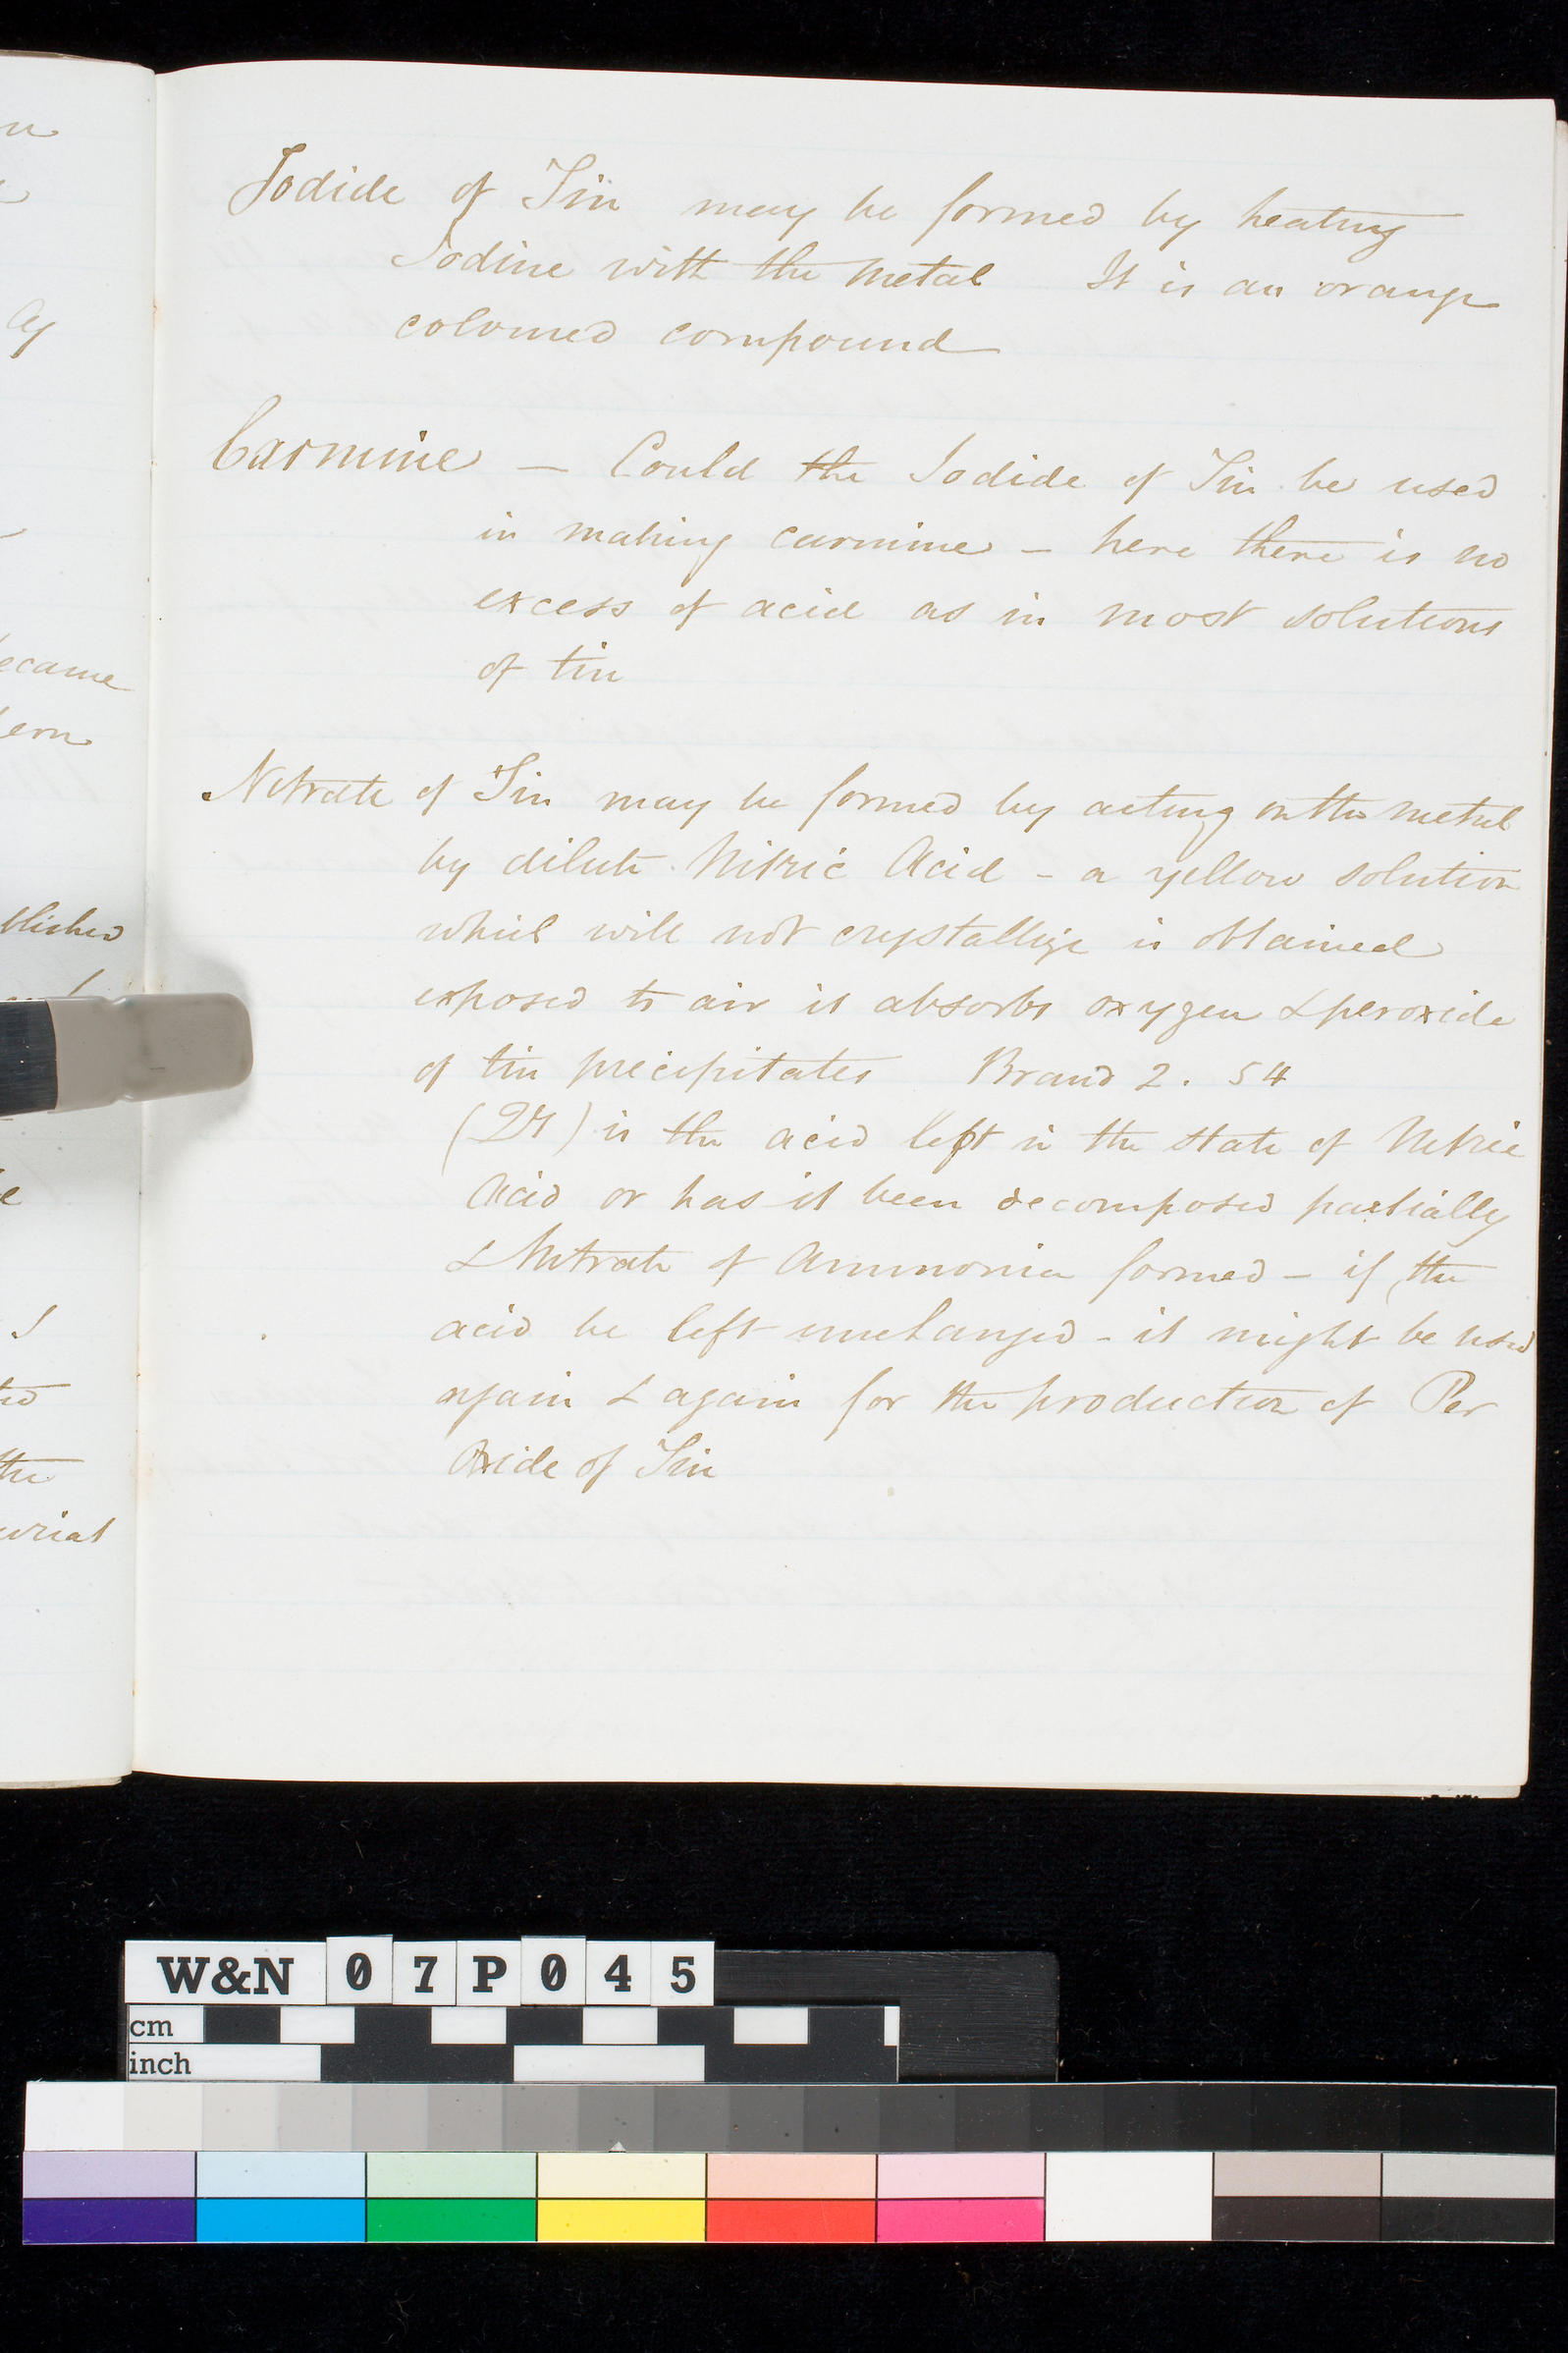 Iodide of Tin may be formed by heating
Iodine with the metal It is an orange
coloured compound
Carmine — Could the Iodide of Tin be used
in making carmine – here there is no
excess of acid as in most solutions
of tin
Nitrate of Tin may be formed by acting on the metal
by dilute Nitric Acid – a yellow solution
which will not crystallize is obtained
exposed to air it absorbs oxygen & peroxide
of tin precipitates Brand 2. 54
(Qy) is the acid left in the state of Nitric
Acid or has it been decomposed partially
& Nitrate of Ammonia formed – if the
acid be left unchanged – it might be used
again & again for the production of Per
Oxide of Tin
ecame
ern
blished
the
W&N 07P045
cm
inch